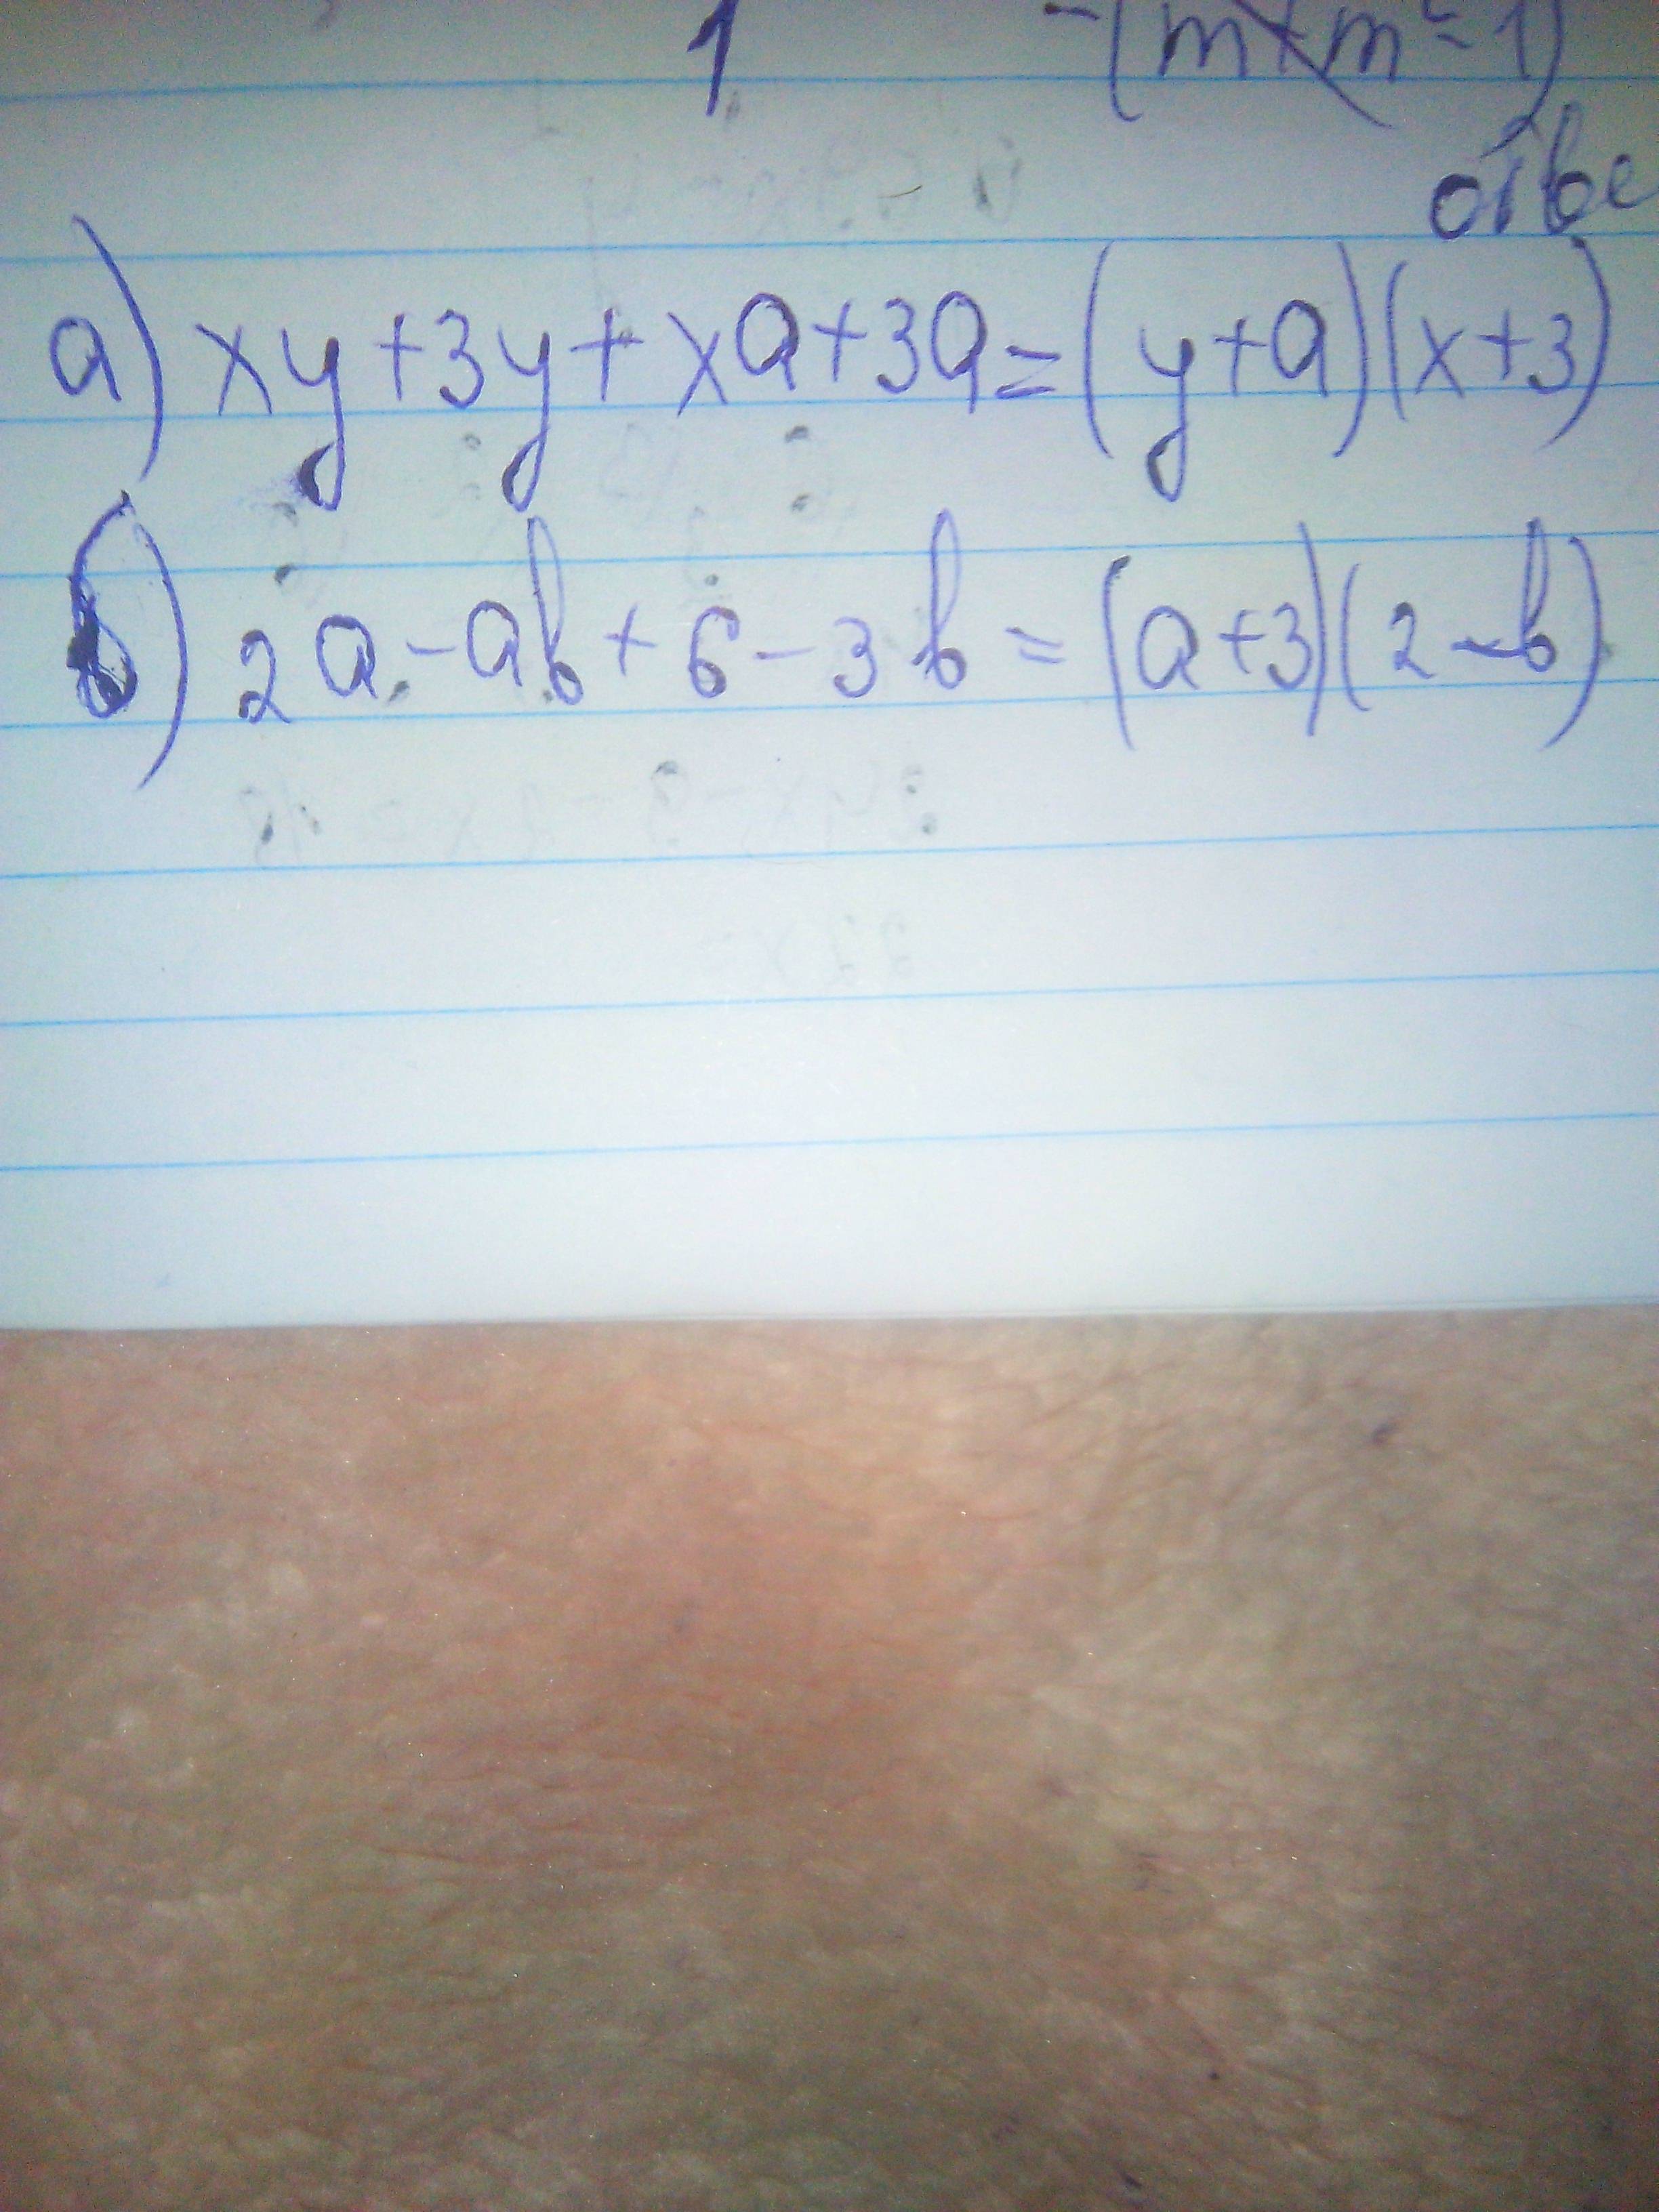 1 -(m+m²-1)
отве
а) xy+3y+xa+3a=(y+a)(x+3)
б) 2a-ab+6-3b=(a+3)(2-b)